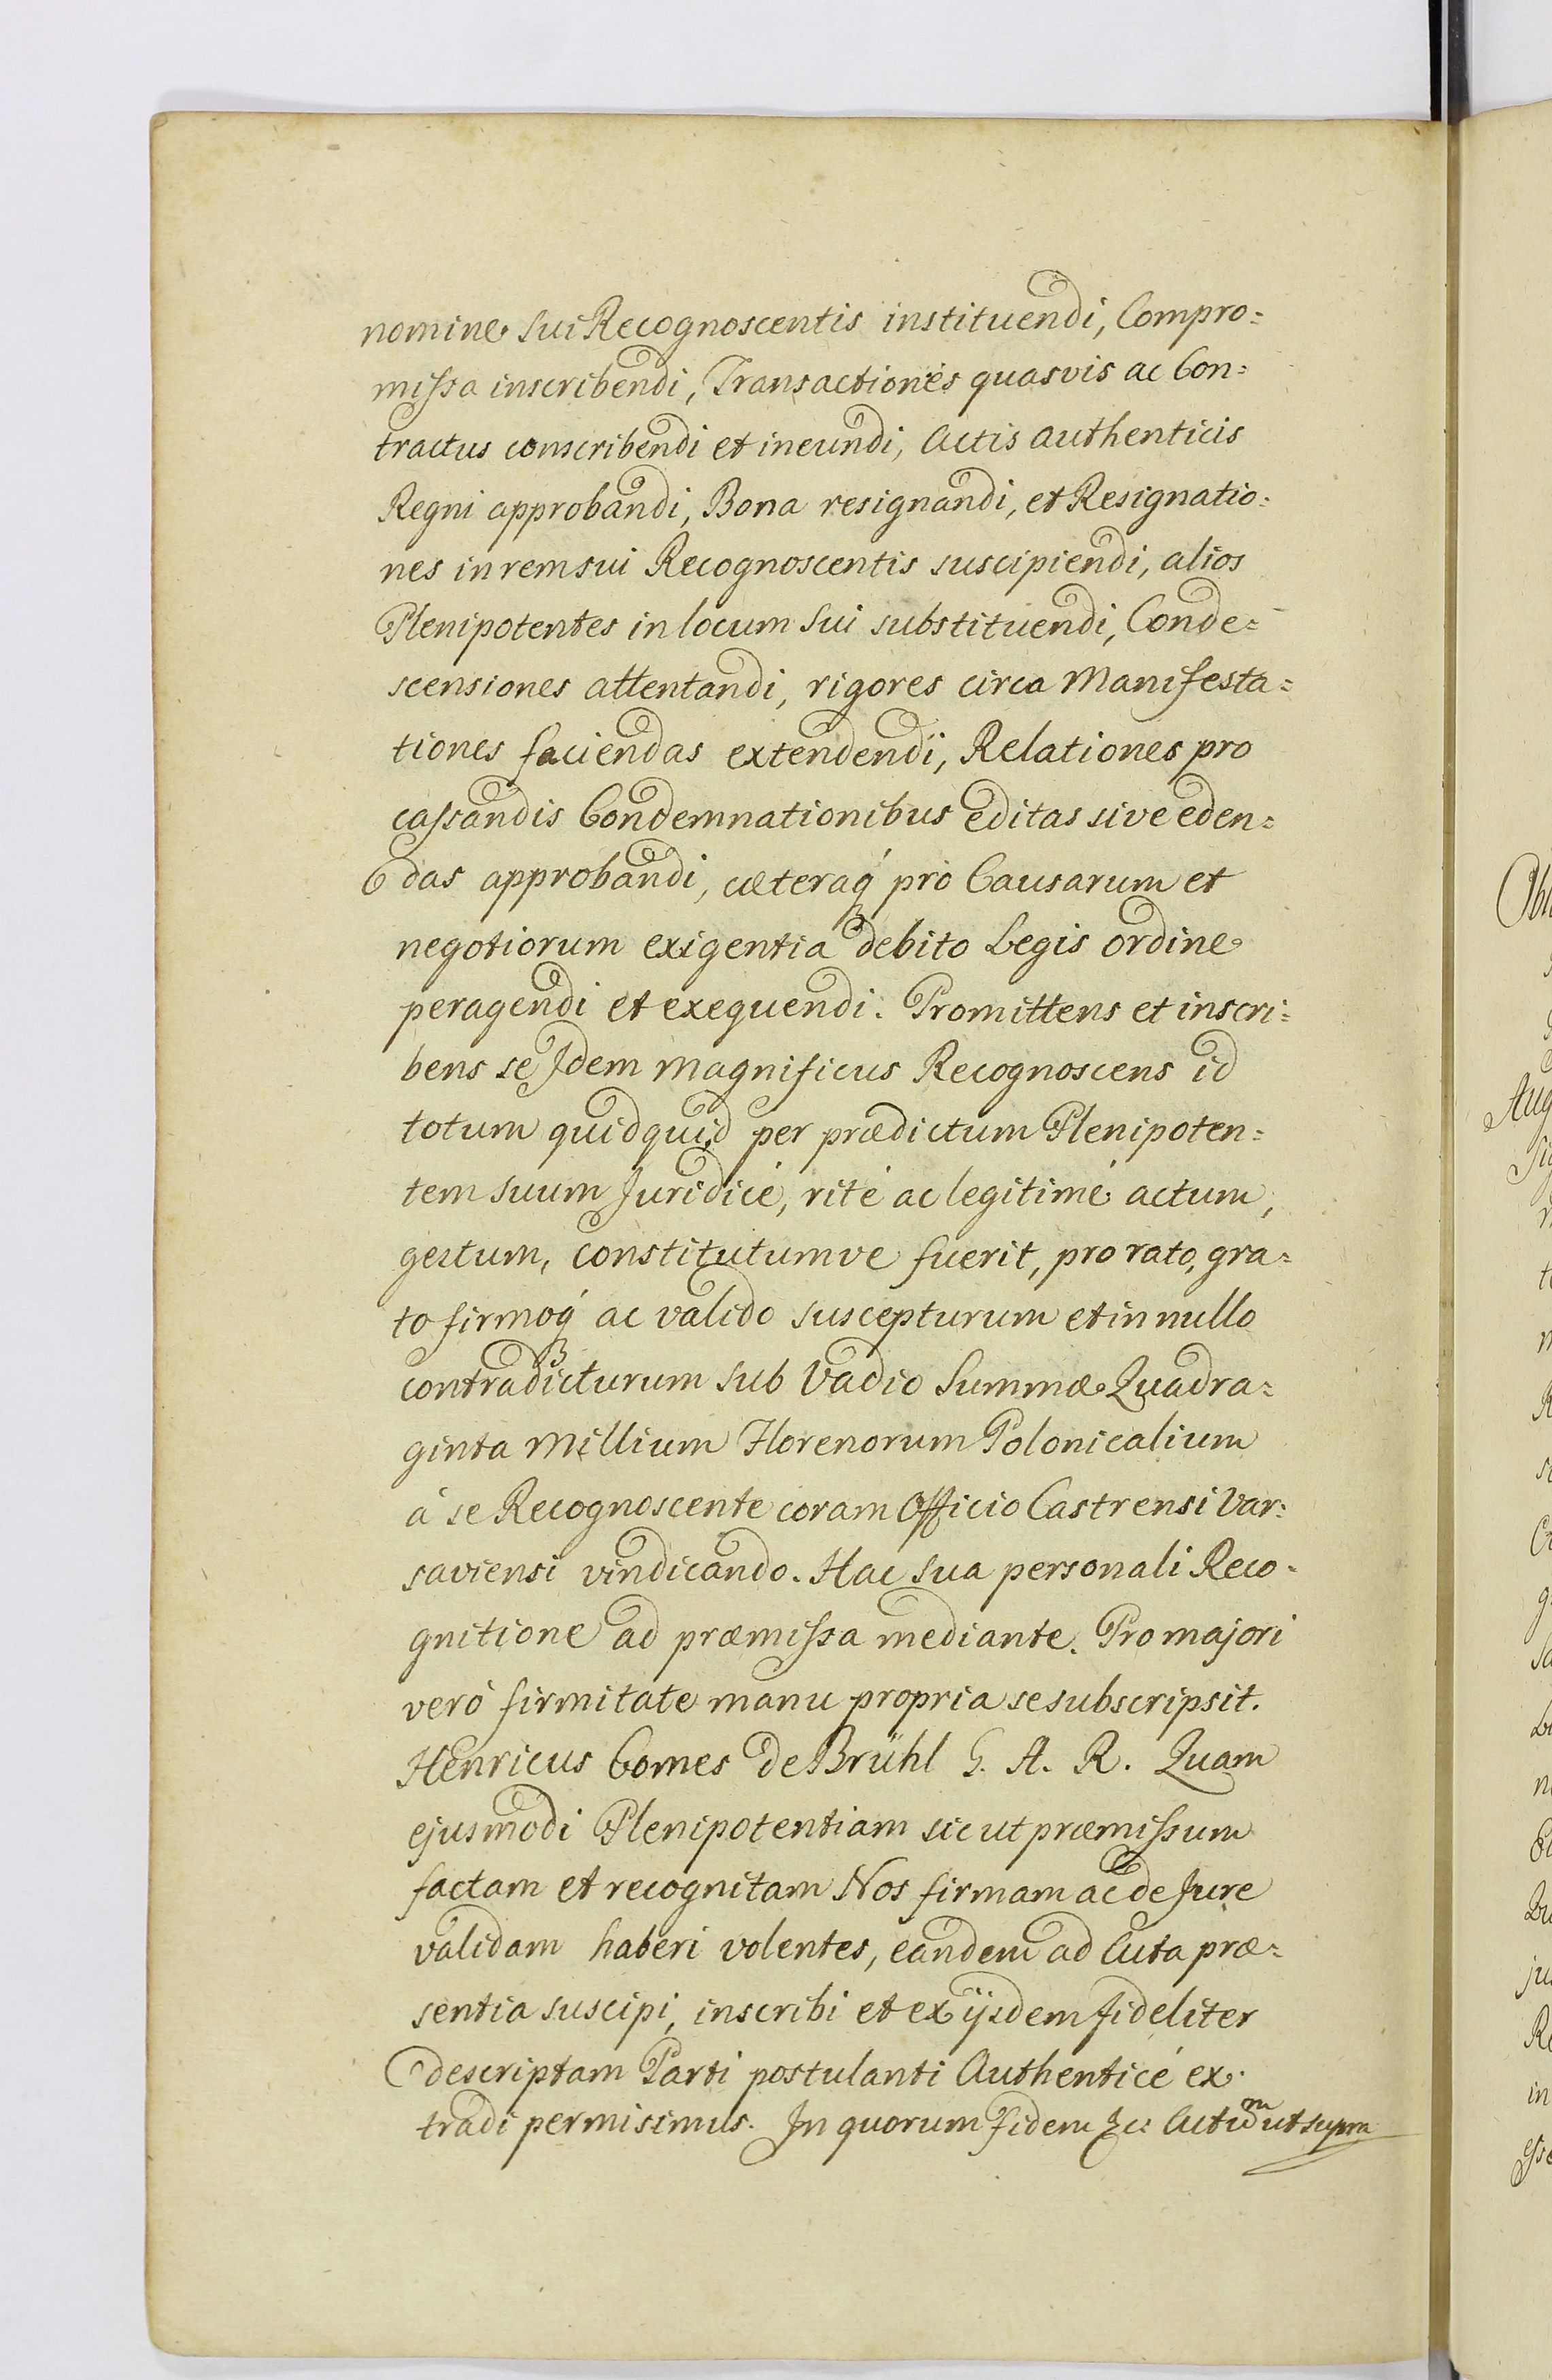 nomine sui Recognoscentis instituendi, Compro=
missa inscribendi, Transactiones quasvis ac Con=
tractus conscribendi et ineundi, Actis authenticis
Regni approbandi, Bona resignandi, et Resignatio=
nes in rem sui Recognoscentis suscipiendi, alios
Plenipotentes in locum sui substituendi, Conde=
scensiones attentandi, rigores circa Manifesta=
tiones faciendas extendendi, Relationes pro
cassandis Condemnationibus editas sive eden=
das approbandi, cæteraq́ pro Causarum et
negotiorum exigentia debito Legis ordine
peragendi et exequendi. Promittens et inscri=
bens se Idem Magnificus Recognoscens id
totum quidquid per prædictum Plenipoten=
tem suum Juridicé, rité ac legitimé actum,
gestum, constitutumve fuerit, pro rato, gra=
to firmoq́ ac valido suscepturum et in nullo
contradicturum sub Vadio Summæ Quadra=
ginta Millium Florenorum Polonicalium
á se Recognoscente coram Officio Castrensi Var=
saviensi vindicando. Hac sua personali Reco=
gnitione ad præmissa mediante. Pro majori
veró firmitate manu propria se subscripsit.
Henricus Comes de Brühl G. A. R. Quam
ejusmodi Plenipotentiam sic ut præmissum
factam et recognitam Nos firmam ac de Jure
validam haberi volentes, eandem ad Acta præ=
sentia suscipi, inscribi et ex ijsdem fideliter
descriptam Parti postulanti Authenticé ex=
tradi permisimus. In quorum fidem &c: Actum ut supra